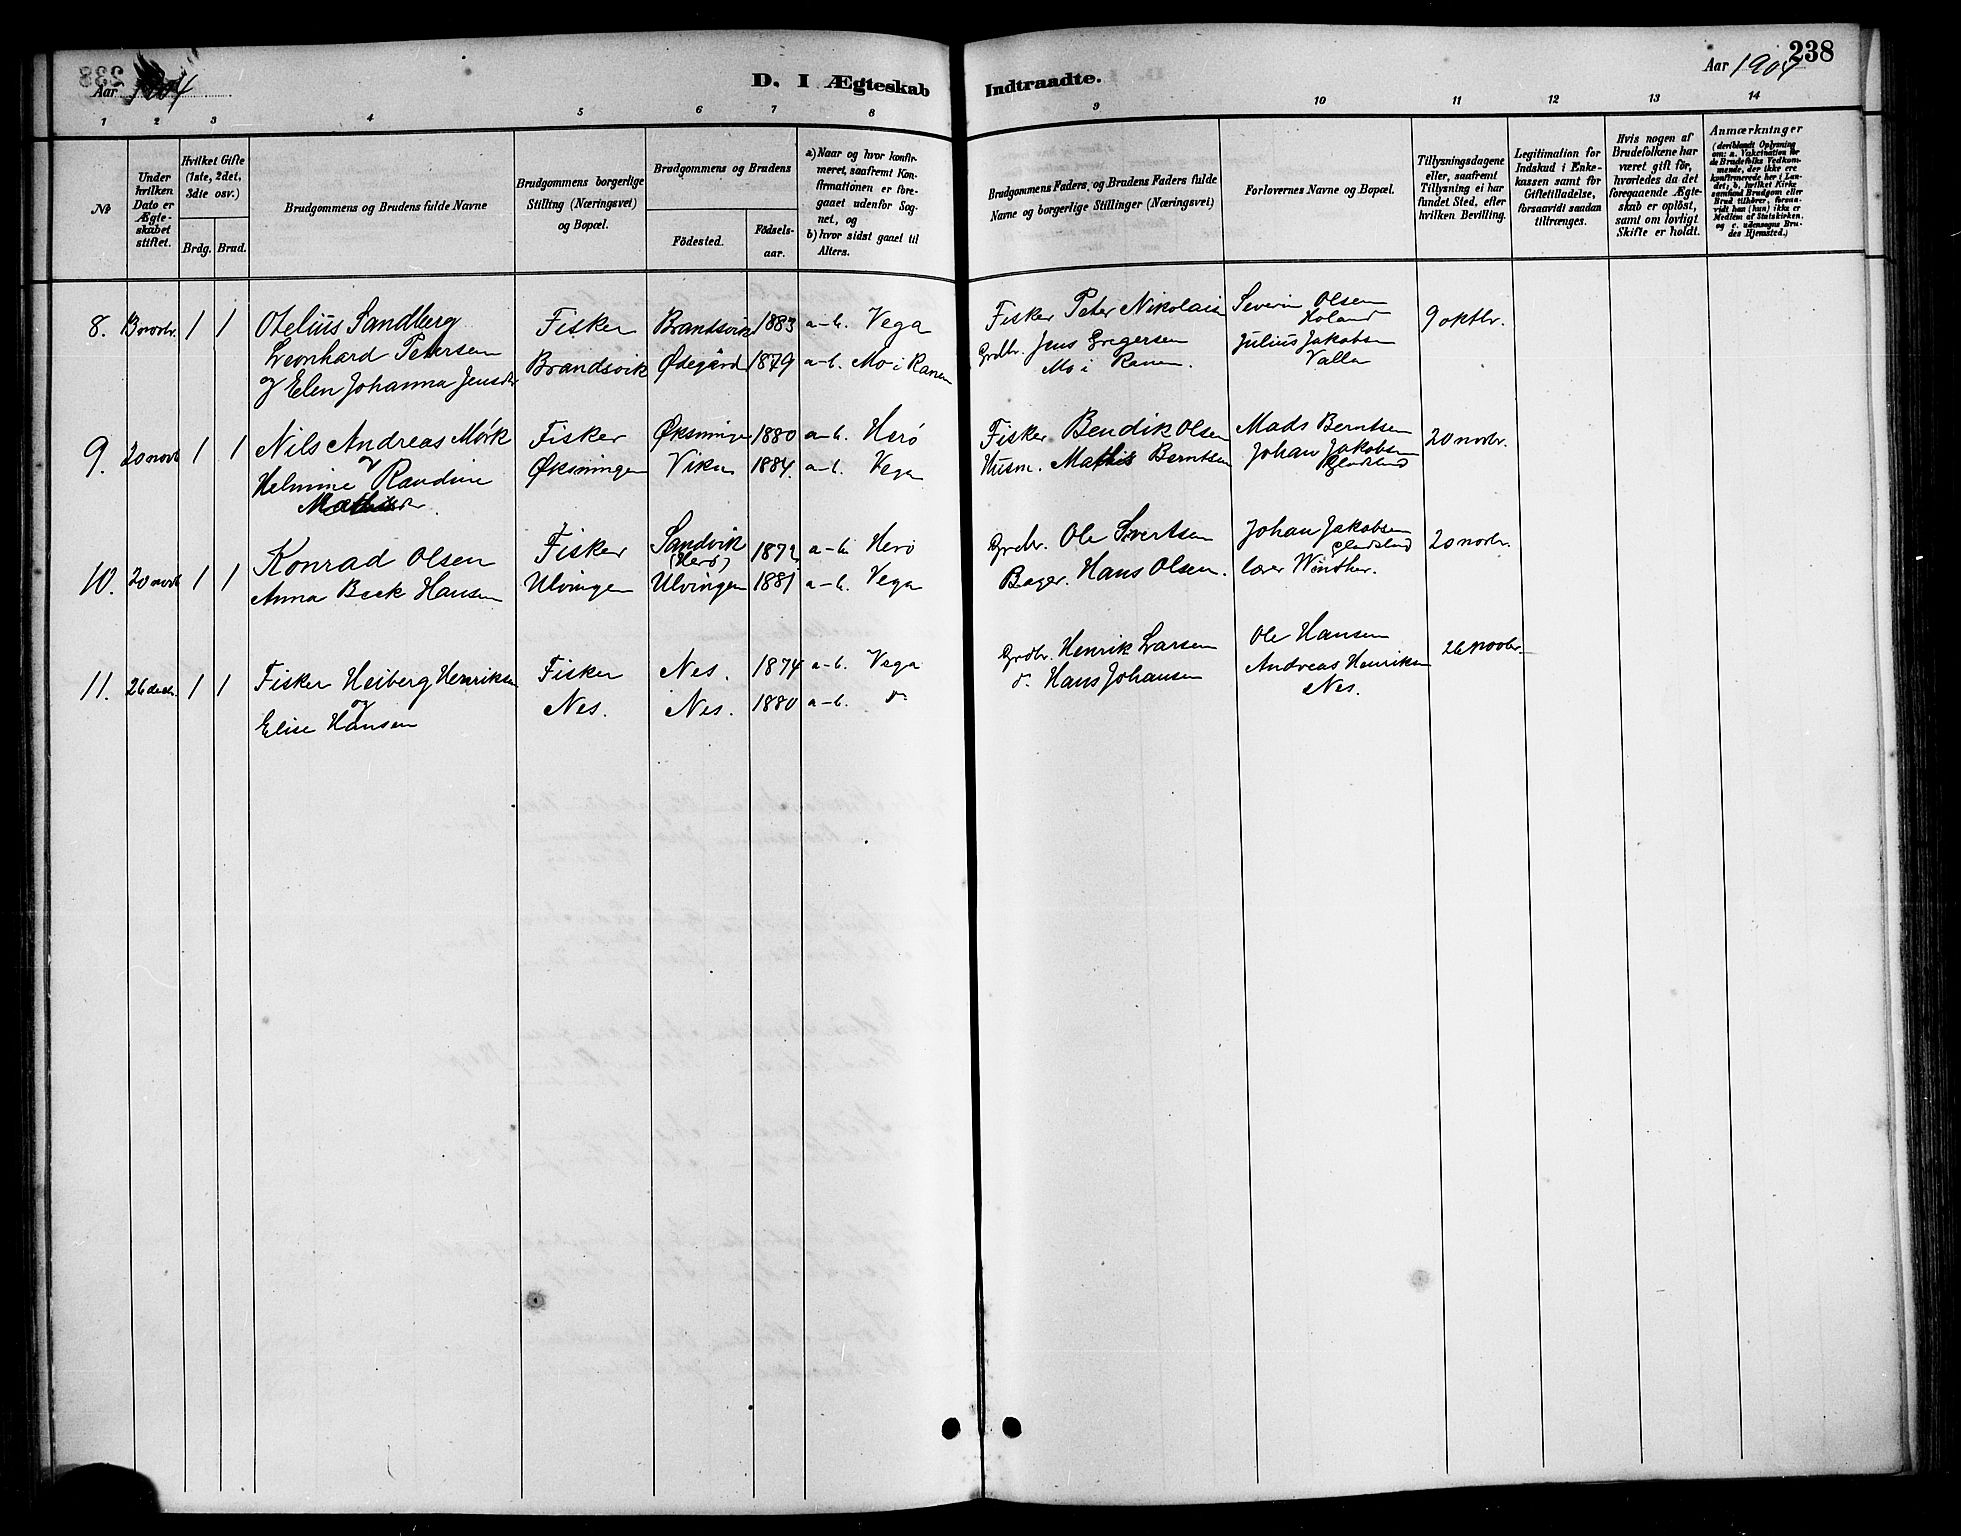 238
Aar 1904
D. I Ægteskab Indtraadte.
Aar 1904
1 2 3 4 5 6 7 8 9 10 11 12 13 14
No
Under hvilken Dato er Ægteskabet stiftet.
Hvilket Gifte (1ste, 2det, 3die osv.)
Brdg. Brud.
Brudgommens og Brudens fulde Navne
Brudgommens borgerlige Stilling (Næringsvei) og Bopæl.
Brudgommens og Brudens
Födested. Födselsaar.
a) Naar og hvor konfirmeret, saafremt Konfirmationen er foregaaet udenfor Sognet, og
b) hvor sidst gaaet til Alters.
Brudgommens Faders, og Brudens Faders fulde Navne og borgerlige Stillinger (Næringsvei)
Forlovernes Navne og Bopæl.
Tillysningsdagene eller, saafremt Tillysning ei har fundet Sted, efter hvilken Bevilling.
Legitimation for Indskud i Enkekassen samt for Giftetilladelse, forsaavidt saadan tiltrænges.
Hvis nogen af Brudefolkene har været gift för, hvorledes da det foregaaende Ægteskab er oplöst, samt om lovligt Skifte er holdt.
Anmærkninger (deriblandt Oplysning om: a. Vakcination for de Brudefolks Vedkommende, der ikke ere konfirmerede her i Landet; b. hvilket Kirkesamfund Brudgom eller Brud tilhörer, forsaavidt han (hun) ikke er Medlem af Statskirken, og c. udensogns Brudes Hjemsted.)
8. 13 novbr. 1 1 Otelius Sandberg Fisker Brandsvik 1883 a-b. Vega Fisker Peter Nikolaisen Severin Olsen Holand 9 oktbr.
Leonhard Petersen
Brandsvik Ødegård 1879 a-b. Mo i Ranen Grdbr. Jens Gregersen Julius Jakobsen
og Elen Johanna Jensdtr Mo i Ranen. Valla
9. 20 novbr 1 1 Nils Andreas Mørk Fisker Øksningen 1880 a-b. Herö Fisker Bendik Olsen Mads Berntsen 20 novbr.
og
Helmine Randine Øksningen Viken 1884. a-b. Vega Husm. Mathis Berntsen Johan Jakobsen
Mathisdtr.
10. 20 novbr 1 1 Konrad Olsen Fisker Sandvik (Herö) 1872 a-b. Herö Grdbr. Ole Sivertsen Johan Jakobsen 20 novbr.
Anna Beck Hansen Ulvingen Ulvingen 1881 a-b. Vega Bager. Hans Olsen. lærer Winther.
11. 26 decbr. 1 1 Fisker Heiberg Henriksen Fisker Nes. 1874 a-b. Vega Grdbr. Henrik Larsen Ole Hansen 26 novbr.
og
Elise Hansen Nes. Nes. 1880 a-b. d. d. Hans Johansen Andreas Henriksen
Nes.